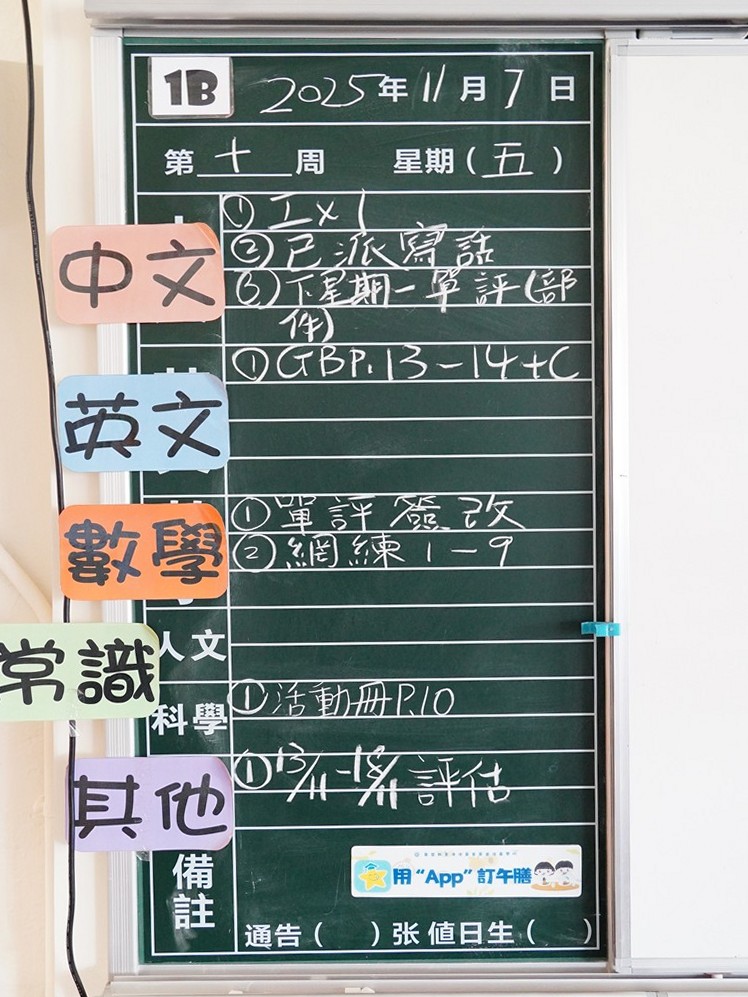 1B 2025年11月7日
第十周 星期(五)
中文
①工x1
②已派寫話
③下星期一單評(部
件)
英文
①GBP.13-14+C
數學
①單評簽改
②網練1-9
人文
常識
科學
①活動冊P.10
其他
①13/11-18/11評估
用“App”訂午膳
備註
通告( )张 値日生( )